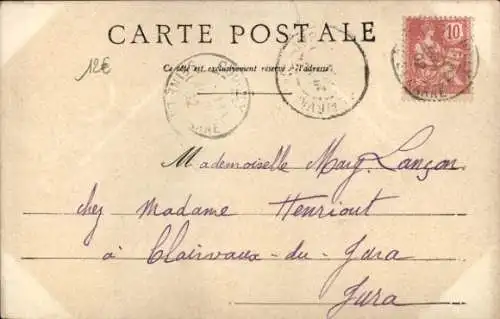 CARTE POSTALE
12€
Ce côté est exclusivement réservé à l'adresse
10
Mademoiselle Marg. Lançon
chez Madame Henriout
à Clairvaux-du-Jura
Jura